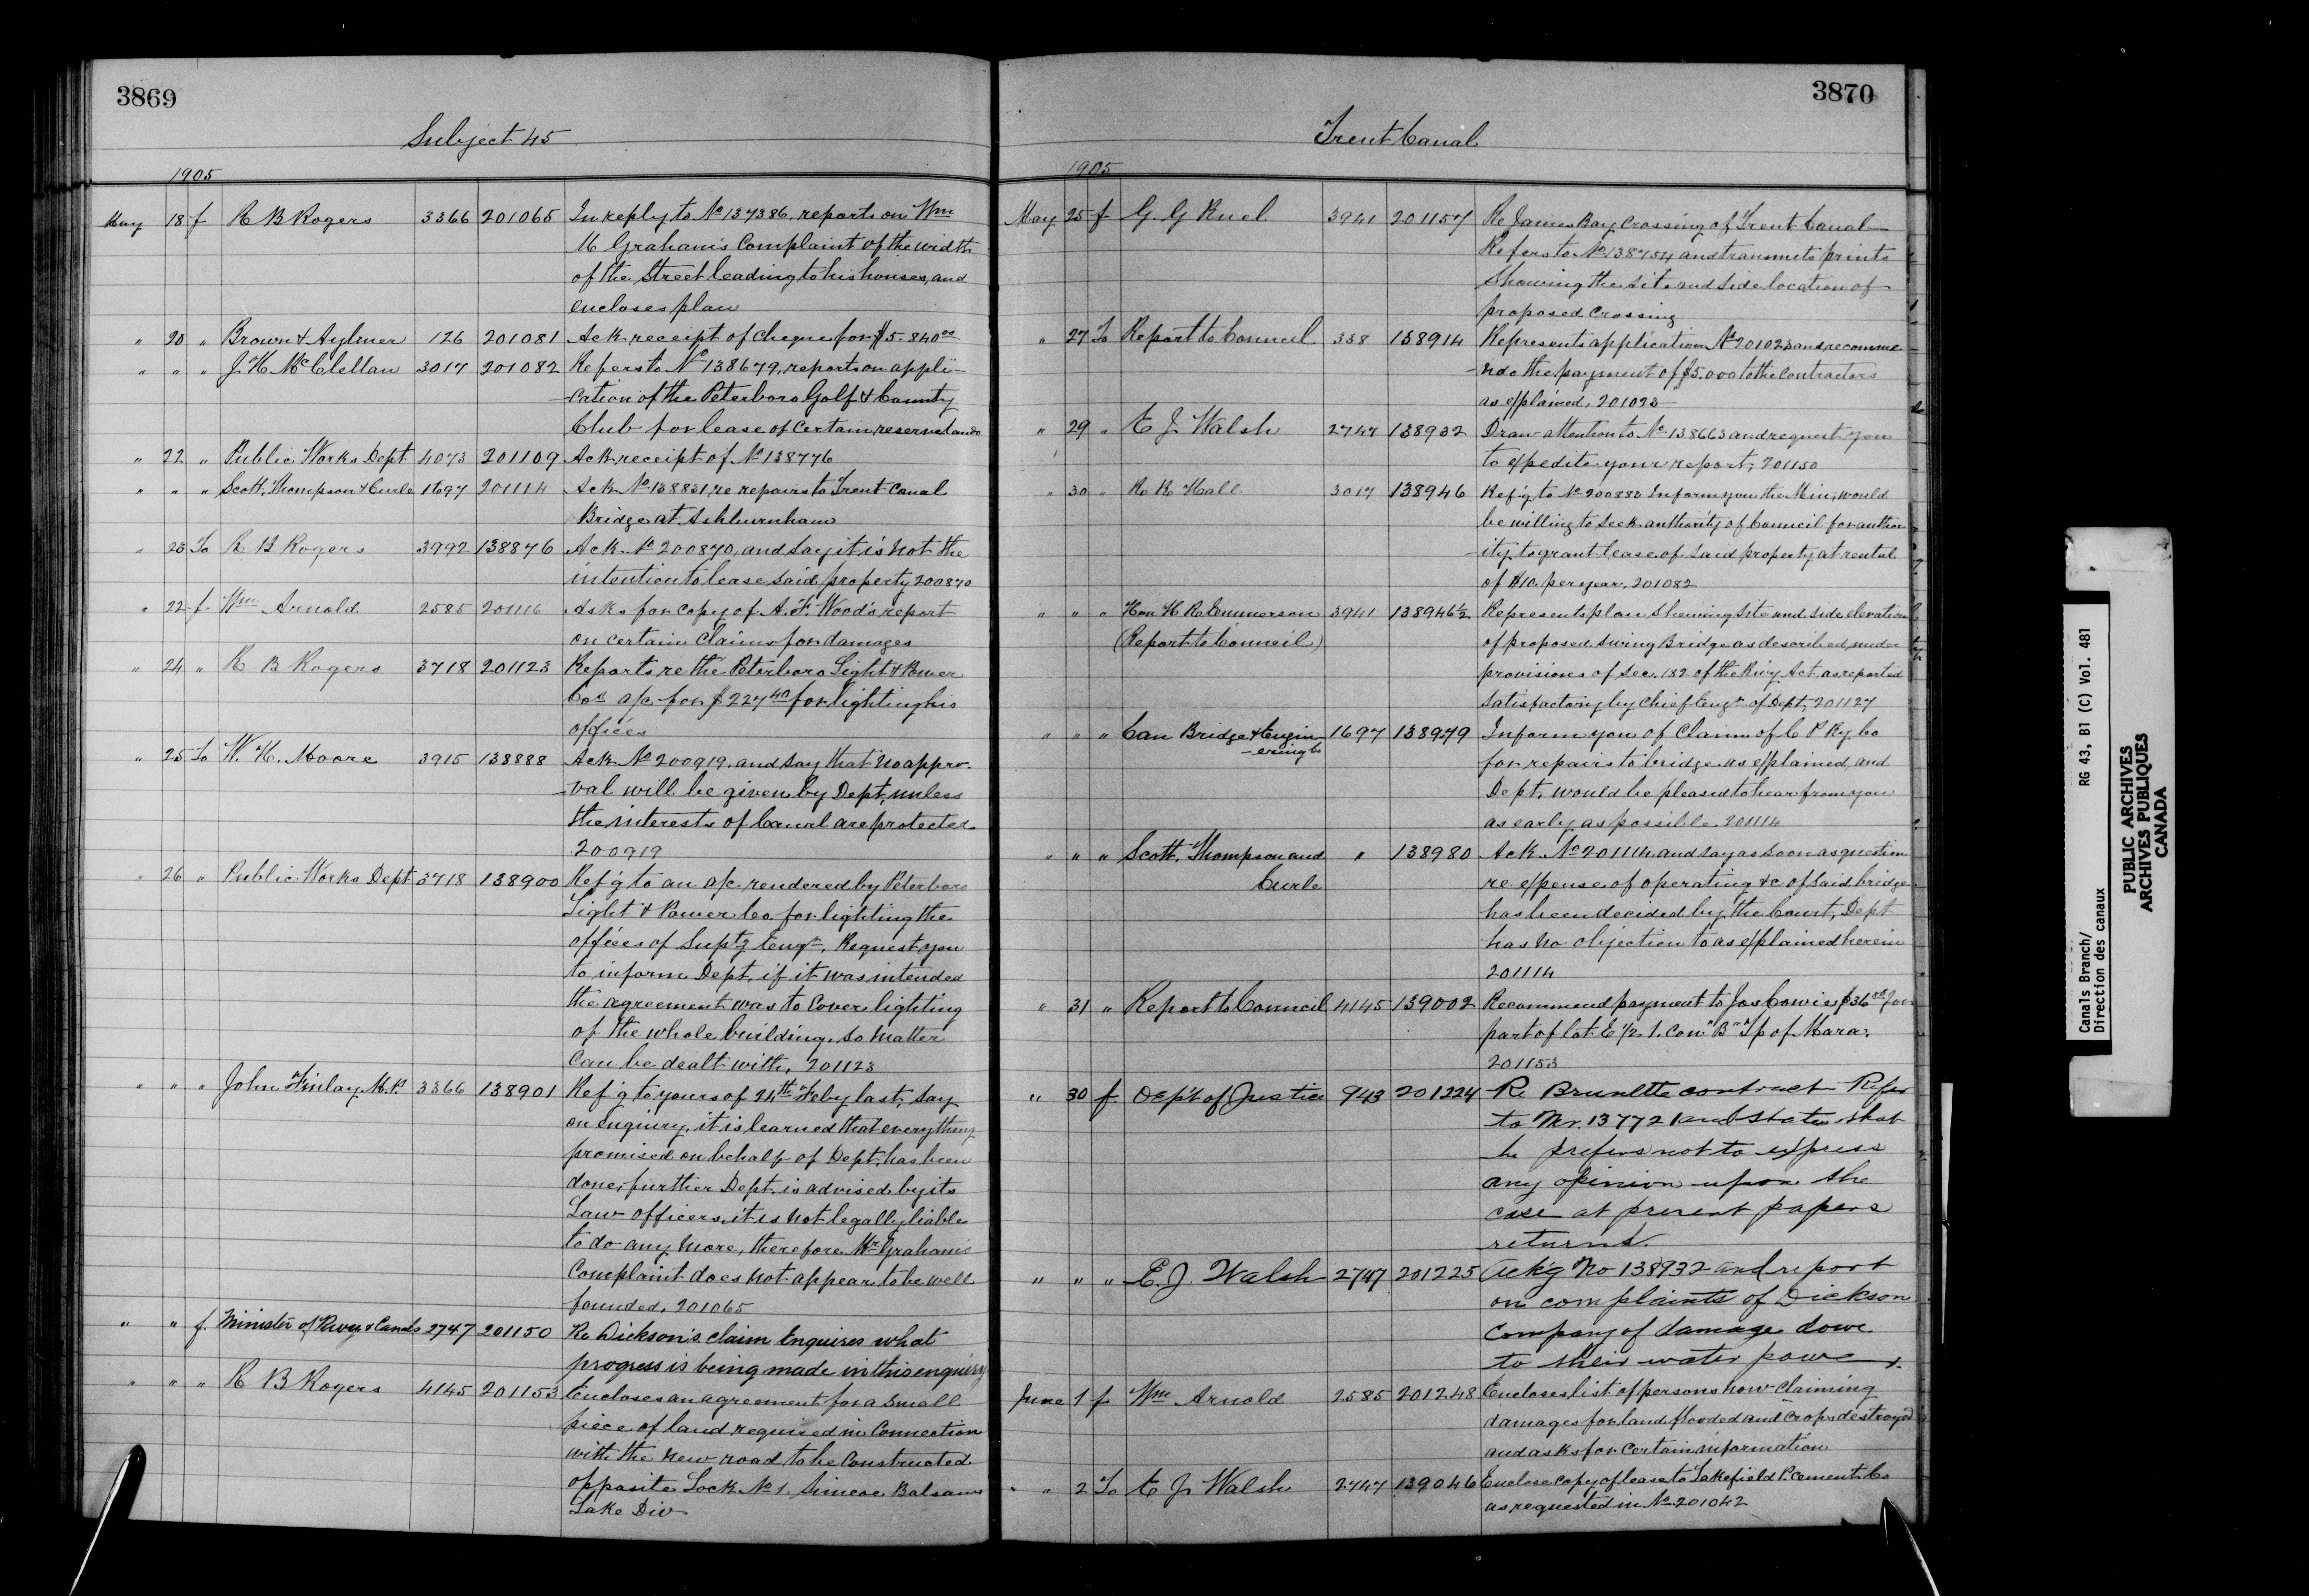 3869
Subject 45
1905
May 18 f R B Rogers 3366 201065 In reply to No 137386, reports on Wm
M Graham's Complaint of the width
of the Street leading to his houses, and
encloses plan
" 20 " Brown & Aylmer 126 201081 Ack receipt of cheque for $5.840 00
" " " J. H. McClellan 3017 201082 Refers to No 138679, reports on appli-
-cation of the Peterboro Golf & County
Club for lease of certain reserve lands
" 22 " Public Works Dept 4073 201109 Ack receipt of No 138776
" " " Scott, Thompson & Curle 1697 201114 Ack No 138831, re repairs to Trent Canal
Bridge at Ashburnham
" 23 To R B Rogers 3992 138876 Ack No 200870, and say it is not the
intention to lease said property 200870
" 22 f Wm Arnold 2585 201116 Asks for copy of A. F. Wood's report
on certain Claims for damages
" 24 " R B Rogers 3718 201123 Reports re the Peterboro Light & Power
Co's a/c for $227 40 for lighting his
offices
" 25 To W. H. Moore 3915 138888 Ack No 200919, and say that no appro-
-val will be given by Dept, unless
the interests of Canal are protected
200919
" 26 " Public Works Dept 3718 138900 Ref'g to an a/c rendered by Peterboro
Light & Power Co. for lighting the
offices of Suptg Engr, Request you
to inform Dept, if it was intended
the agreement was to cover lighting
of the whole building, so matter
can be dealt with, 201123
" " " John Finlay M.P. 3366 138901 Ref'g to yours of 24th Feby last, say
on enquiry, it is learned that everything
promised on behalf of Dept, has been
done, further Dept. is advised by its
Law officers, it is not legally liable
to do any more, therefore Mr Graham's
Complaint does not appear to be well
founded, 201065
" " f. Minister of Rwys & Canals 2747 201150 Re Dickson's claim Enquires what
progress is being made in this enquiry
" " " R B Rogers 4145 201153 Encloses an agreement for a small
piece of land required in Connection
with the new road to be constructed
opposite Lock No 1. Simcoe Balsam
Lake Div
3870
Trent Canal
1905
May 25 f G. G Ruel 3941 201157 Re James Bay Crossing of Trent Canal
Refers to No 138754 and transmits prints
Showing the site and side location of
proposed Crossing
" 27 To Report to Council 338 138914 Represents application No 201023 and recomme-
-nds the payment of $5.000 to the Contractors
as explained, 201023
" 29 " E J Walsh 2747 138932 Draw attention to No 138663 and request you
to expedite your report, 201150
" 30 " R. R. Hall 3017 138946 Ref'g to No 200882 Inform you the Min, would
be willing to seek authority of Council for author
-ity to grant lease of said property at rental
of $10. per year, 201082
" " " Hon H R Emmerson 3941 138946½ Represents plan shewing site and side elevation
(Report to Council) of proposed Swing Bridge as described, under
provisions of Sec, 182 of the Rwy Act as reported
satisfactory by Chief Engr of Dept, 201127
" " " Can Bridge & Engin- 1697 138979 Inform you of Claim of C P Ry. Co
-ering Co for repairs to bridge as explained, and
Dept, would be pleased to hear from you
as early as possible. 201114
" " " Scott, Thompson and " 138980 Ack No 201114 and say as soon as question
Curle re expense of operating &c of said bridge
has been decided by the Court, Dept
has no objection to as explained herein
201114
" 31 " Report to Council 4145 139002 Recommend payment to Jas Cowie $36 for
part of lot E ½ 1. Con "B" Tp of Mara,
201153
" 30 f. Dept of Justice 943 201224 Re Brunette contract Refer
to Nr. 137721 and states that
he prefers not to express
any opinion upon the
case at present papers
returned.
" " " E. J. Walsh 2747 201225 Ack'g No 138932 and report
on complaints of Dickson
Company of damage done
to their water power.
June 1 f Wm Arnold 2585 201248 Encloses list of persons now claiming
damages for land flooded and crops destroyed
and asks for certain information
" 2 To E J Walsh 2747 139046 Enclose copy of lease to Lakefield P. cement Co
as requested in No 201042
Canals Branch/ RG 43, B1 (C) Vol. 481
Direction des canaux
PUBLIC ARCHIVES
ARCHIVES PUBLIQUES
CANADA